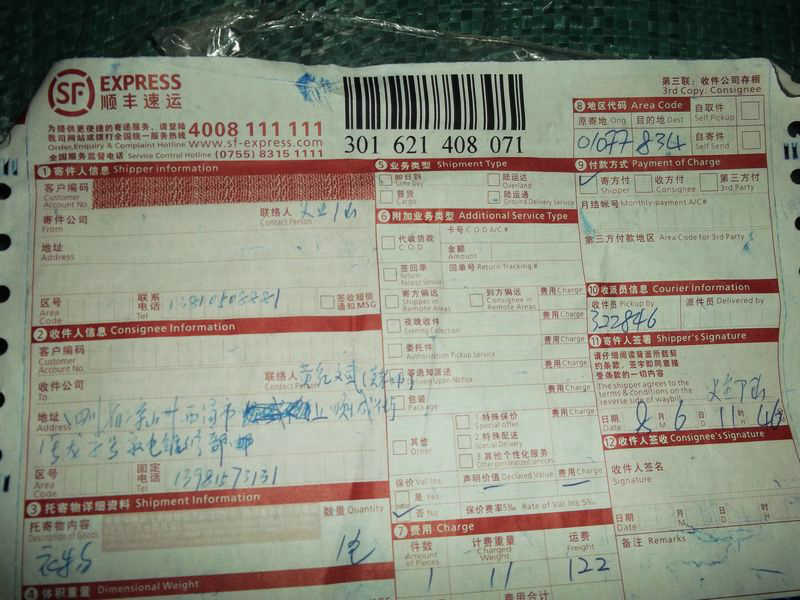 SF EXPRESS
顺丰速运
为提供更便捷的寄递服务,请登陆
我司网站或拨打全国统一服务热线
4008 111 111
Order, Enquiry & Complaint Hotline www.sf-express.com
全国服务监督电话 Service Control Hotline (0755) 8315 1111
301 621 408 071
第三联:收件公司存根
3rd Copy: Consignee
8 地区代码 Area Code
原寄地 Orig 目的地 Dest
自取件
Self Pickup
自寄件
Self Send
834
1 寄件人信息 Shipper Information
客户编码
Customer
Account No.
寄件公司
From
联络人
Contact Person
地址
Address
区号
Area
Code
联系
电话
Tel
签收短信
通知MSG
2 收件人信息 Consignee Information
客户编码
Customer
Account No.
收件公司
To
联络人
Contact Person
地址
Address
区号
Area
Code
固定
电话
Tel
3 托寄物详细资料 Shipment Information
托寄物内容
Description of Goods
数量 Quantity
4 体积重量 Dimensional Weight
5 业务类型 Shipment Type
即日到
Same Day
陆运达
Overland
普货
Cargo
陆运通
Ground Delivery Service
6 附加业务类型 Additional Service Type
代收货款
C.O.D
卡号 C.O.D A/C#
金额
Amount
签回单
Return
Receipt Service
回单号 Return Tracking #
寄方偏远
Shipper in
Remote Areas
到方偏远
Consignee in
Remote Areas
费用 Charge
夜晚收件
Evening Collection
费用 Charge
委托件
Authorization Pickup Service
费用 Charge
包装
Package
其他
Other
1 特殊保价
Special offer
2 特殊配送
Special Delivery
3 其他个性化服务
保价 Val Ins.
声明价值 Declared Value
费用 Charge
是 Yes
否 No
保价费率5‰ Rate of Val Ins. 5‰
7 费用 Charge
件数
Amount
of Pieces
计费重量
Charged
Weight
运费
Freight
1 11 122
费用合计
9 付款方式 Payment of Charge
寄方付
Shipper
收方付
Consignee
第三方付
3rd Party
月结帐号 Monthly-payment A/C#
第三方付款地区 Area Code for 3rd Party
10 收派员信息 Courier Information
收件员 Pickup by
派件员 Delivered by
322846
11 寄件人签署 Shipper's Signature
请仔细阅读背面所载契
约条款,签字即同意接
受条款的一切内容
The shipper agrees to the
terms & conditions on the
reverse side of waybill
日期
Date
8 月 6 日 11 时 46
12 收件人签收 Consignee's Signature
收件人签名
Signature
日期
Date
月
M
日
D
时
备注 Remarks